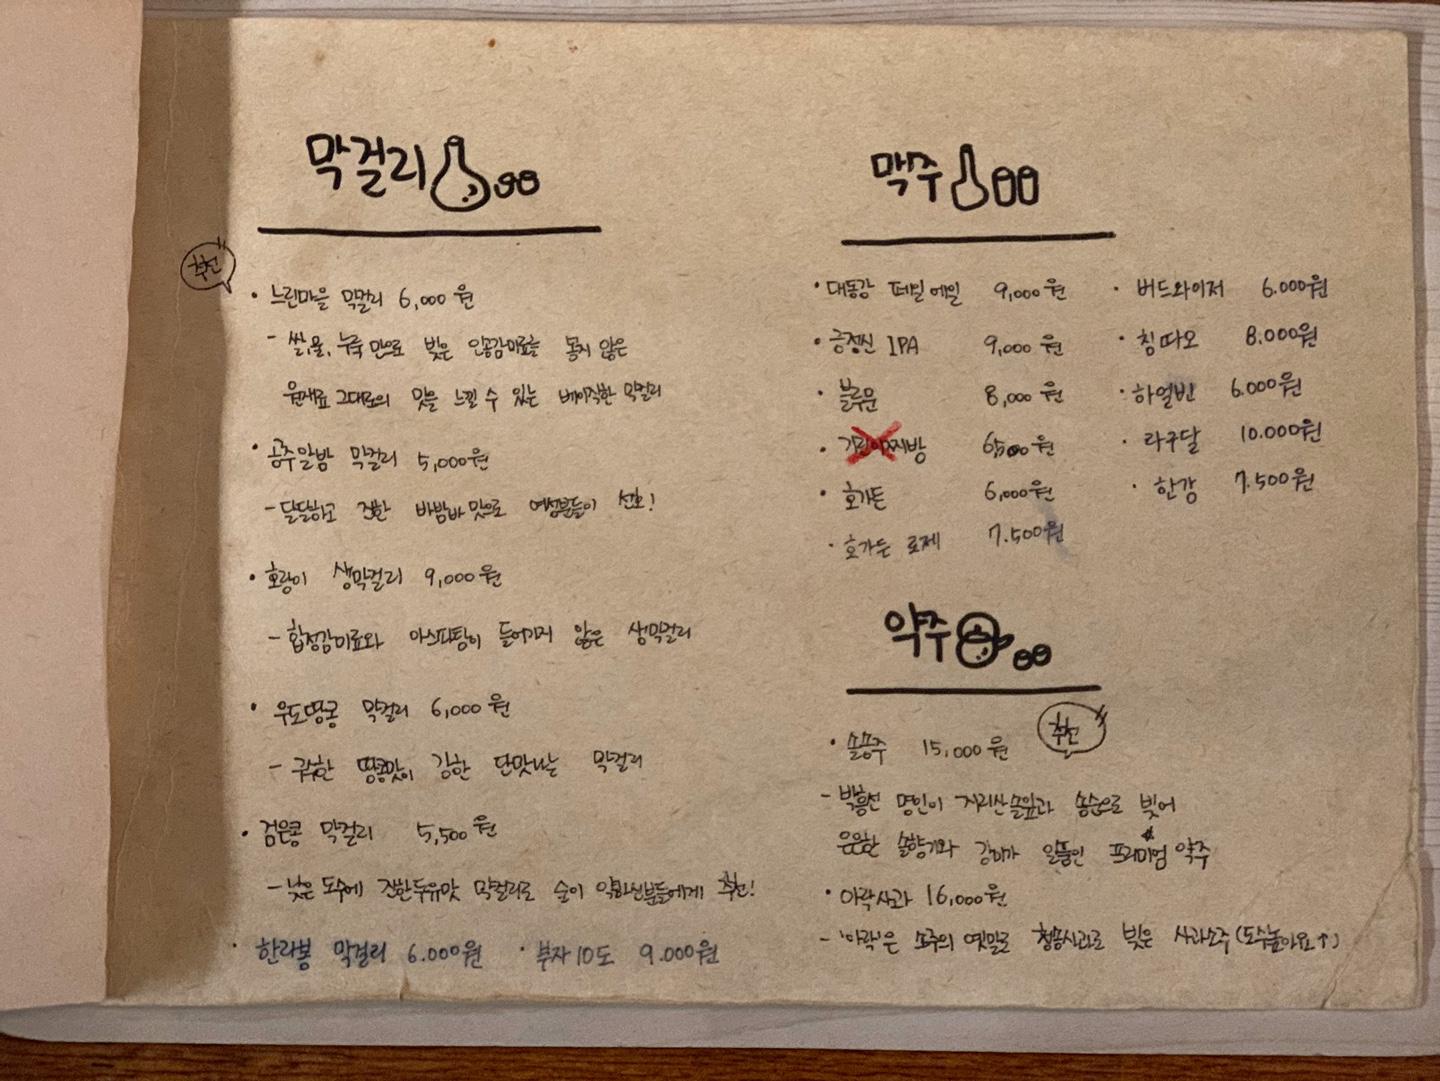 막걸리
추천
· 느린마을 막걸리 6,000원
- 쌀,물, 누룩 만으로 빚은 인공감미료를 넣지 않은
원재료 그대로의 맛을 느낄 수 있는 베이직한 막걸리
· 공주알밤 막걸리 5,000원
- 달달하고 진한 바밤바 맛으로 여성분들이 선호!
· 호랑이 생막걸리 9,000원
- 합성감미료와 아스파탐이 들어가지 않은 생막걸리
· 우도땅콩 막걸리 6,000원
- 구수한 땅콩맛이 강한 단맛나는 막걸리
· 검은콩 막걸리 5,500원
- 낮은 도수에 진한두유맛 막걸리로 술이 약하신분들에게 추천!
· 한라봉 막걸리 6.000원 · 부자10도 9.000원
맥주
· 대동강 페일에일 9,000원
· 긍정신 IPA 9,000원
· 블루문 8,000원
· 기린이찌방 6,500원
· 호가든 6,000원
· 호가든 로제 7.500원
· 버드와이저 6.000원
· 칭따오 8.000원
· 하얼빈 6.000원
· 라구달 10.000원
· 한강 7.500원
약주
· 솔송주 15,000원 추천
- 박흥선 명인이 지리산솔잎과 송순으로 빚어
은은한 솔향기와 감미가 일품인 프리미엄 약주
· 아락사과 16,000원
- '아락'은 소주의 옛말로 청송사과로 빚은 사과소주(도수높아요↑)